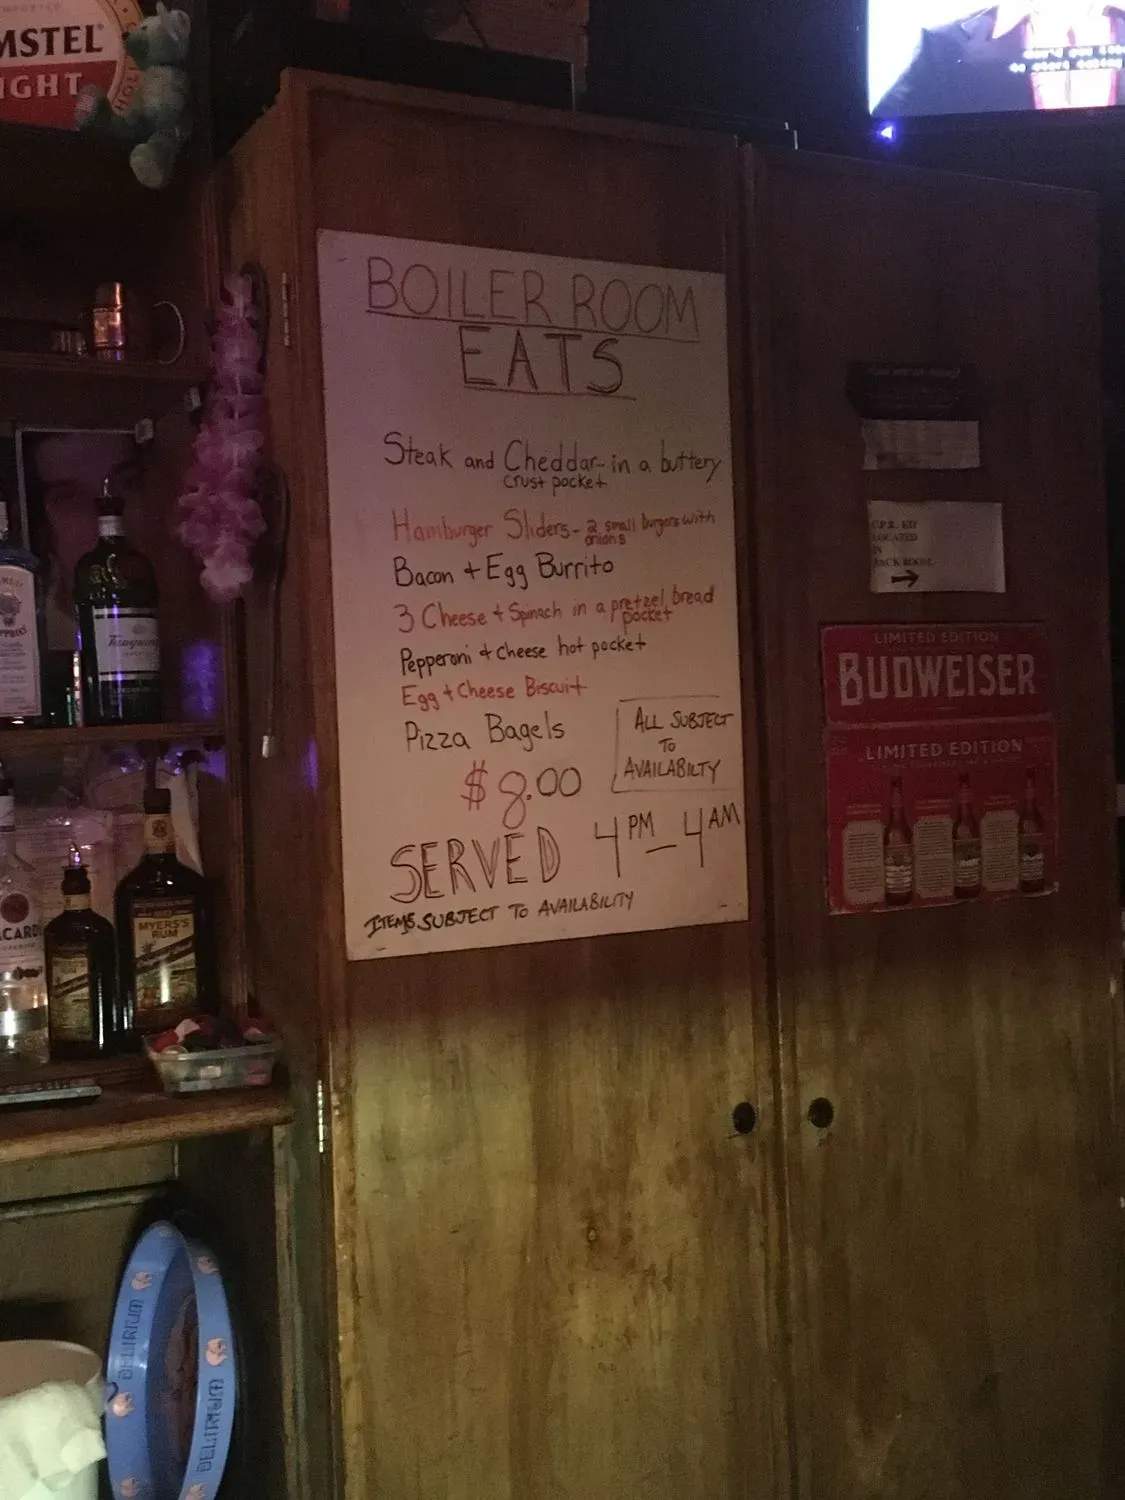 MSTEL
IGHT
BOILER ROOM
EATS
Steak and Cheddar- in a buttery
crust pocket
Hamburger Sliders- 2 small burgers with
onions
Bacon + Egg Burrito
3 Cheese + Spinach in a pretzel bread
pocket
Pepperoni + Cheese hot pocket
Egg + Cheese Biscuit
Pizza Bagels
ALL SUBJECT
TO
AVAILABILTY
$8.00
SERVED 4PM-4AM
ITEMS SUBJECT TO AVAILABILITY
C.P.R. KIT
LOCATED
IN
BACK ROOM
LIMITED EDITION
BUDWEISER
LIMITED EDITION
Tanqueray
ACARDI
MYERS'S
RUM
DELIRIUM
DELIRIUM